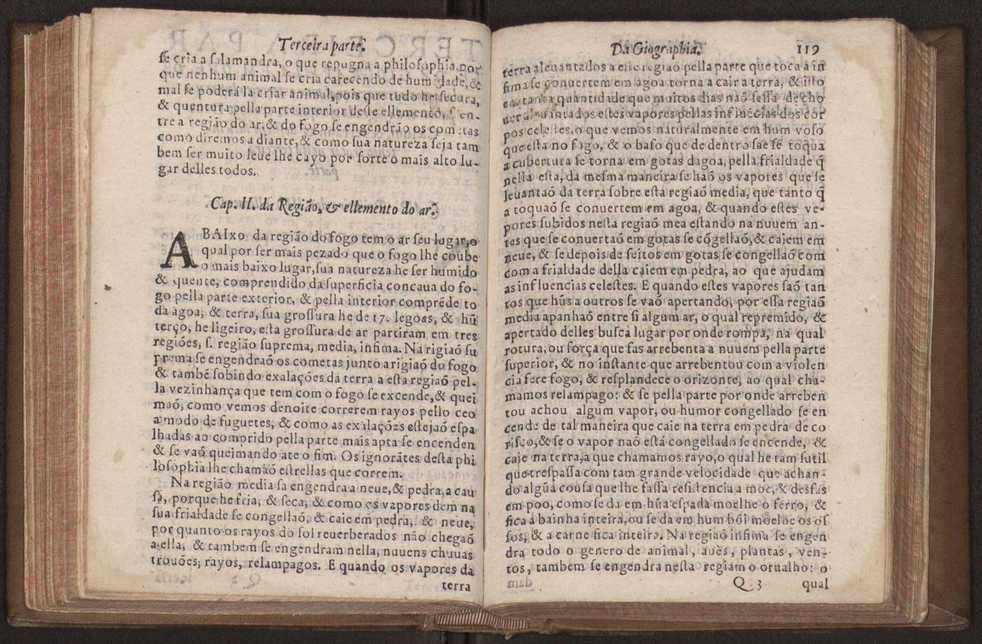 Terceira parte.
se cria a salamandra, o que repugna a philosophia, por
que nenhum animal se cria carecendo de humidade, &
mal se poderá la criar animal, pois que tudo he secura,
& quentura pella parte interior deste ellemento, & en-
tre a região do ar, & do fogo, se engendrão os cometas
como diremos a diante, & como sua natureza seja tam
bem ser muito leue lhe cayo por forte o mais alto lu-
gar delles todos.
Cap. II. da Região, & ellemento do ar.
ABAIxo da região do fogo tem o ar seu lugar, o
qual por ser mais pezado que o fogo lhe coube
o mais baixo lugar, sua natureza he ser humido
& quente, comprendido da superficia concaua do fo-
go pella parte exterior, & pella interior comprẽde to
da agoa; & terra, sua grossura he de 17. legoas, & hũ
terço, he ligeiro, esta grossura de ar partiram em tres
regiões, s. região suprema, media, infima. Na rigiaõ su
prema se engendraõ os cometas junto a rigiaõ do fogo
& tambẽ sobindo exalações da terra a esta regiaõ pel-
la vezinhança que tem com o fogo se excende, & quei
maõ, como vemos denoite correrem rayos pello ceo
a modo de fuguetes, & como as exalações estejaõ espa
lhadas ao comprido pella parte mais apta se encenden
& se vaõ queimando ate o fim. Os ignorãtes desta phi
losophia lhe chamaõ estrellas que correm.
Na região media sa engendra a neue, & pedra, a cau
sa, porque he fria, & seca, & como os vapores dem na
sua frialdade se congellaõ, & caie em pedra, & neue,
por quanto os rayos do sol reuerberados não chegaõ
a ella, & tambem se engendram nella, nuuens chuuas
trouões, rayos, relampagos. E quando os vapores da
terra
Da Giographia. 119
terra aleuantados a este regiaõ pella parte que toca à in
fima se conuertem em agoa torna a cair a terra, & isto
em tanta quantidade que muitos dias naõ sessa de cho
uer aleuantados estes vapores pellas influẽcias dos cor
pos celestes, o que vemos naturalmente em hum voso
que esta no fogo, & o bafo que de dentro sae se toqua
a cubertura se torna em gotas dagoa, pella frialdade q̃
nella esta, da mesma maneira se haõ os vapores que se
leuantaõ da terra sobre esta regiaõ media, que tanto q̃
a toquaõ se conuertem em agoa, & quando estes ve-
pores subidos nesta regiaõ mea estando na nuuem an-
tes que se conuertaõ em gotas se cõgellaõ, & caiem em
neue, & se depois de feitos em gotas se congellaõ com
com a frialdade della caiem em pedra, ao que ajudam
as influencias celestes. E quando estes vapores saõ tan
tos que hũs a outros se vaõ apertando, por essa regiaõ
media apanhaõ entre si algum ar, o qual repremido, &
apertado delles busca lugar por onde rompa, na qual
rotura, ou força que fas arrebenta a nuuem pella parte
superior, & no instante que arrebentou com a violen
cia fere fogo, & resplandece o orizonte, ao qual cha-
mamos relampago: & se pella parte por onde arreben
tou achou algum vapor, ou humor congellado se en
cende de tal maneira que caie na terra em pedra de co
risco, & se o vapor naõ está congellado se encende, &
caie na terra, a que chamamos rayo, o qual he ram sutil
que trespassa com tam grande velocidade que achan-
do algũa cousa que lhe fassa resistencia a moe, & desfas
em poo, como se da em hũa espada moelhe o ferro, &
fica a bainha inteira, ou se da em hum boi moelhe os os
sos, & a carne fica inteira. Na regiaõ infima se engen
dra todo o genero de animal, aues, plantas, ven-
tos, tambem se engendra nesta regiam o orualho: o
Q 3 qual